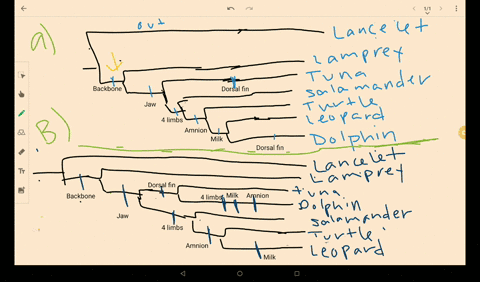 1/1
a)
out
Lancelet
Lamprey
Backbone
Tuna
Dorsal fin
Jaw
Salamander
4 limbs
Turtle
Amnion
Leopard
Milk
Dorsal fin
Dolphin
B)
Lancelet
Lamprey
Backbone
Dorsal fin
Tuna
Jaw
4 limbs Milk Amnion
Dolphin
Salamander
4 limbs
Turtle
Amnion
Leopard
Milk
Tr